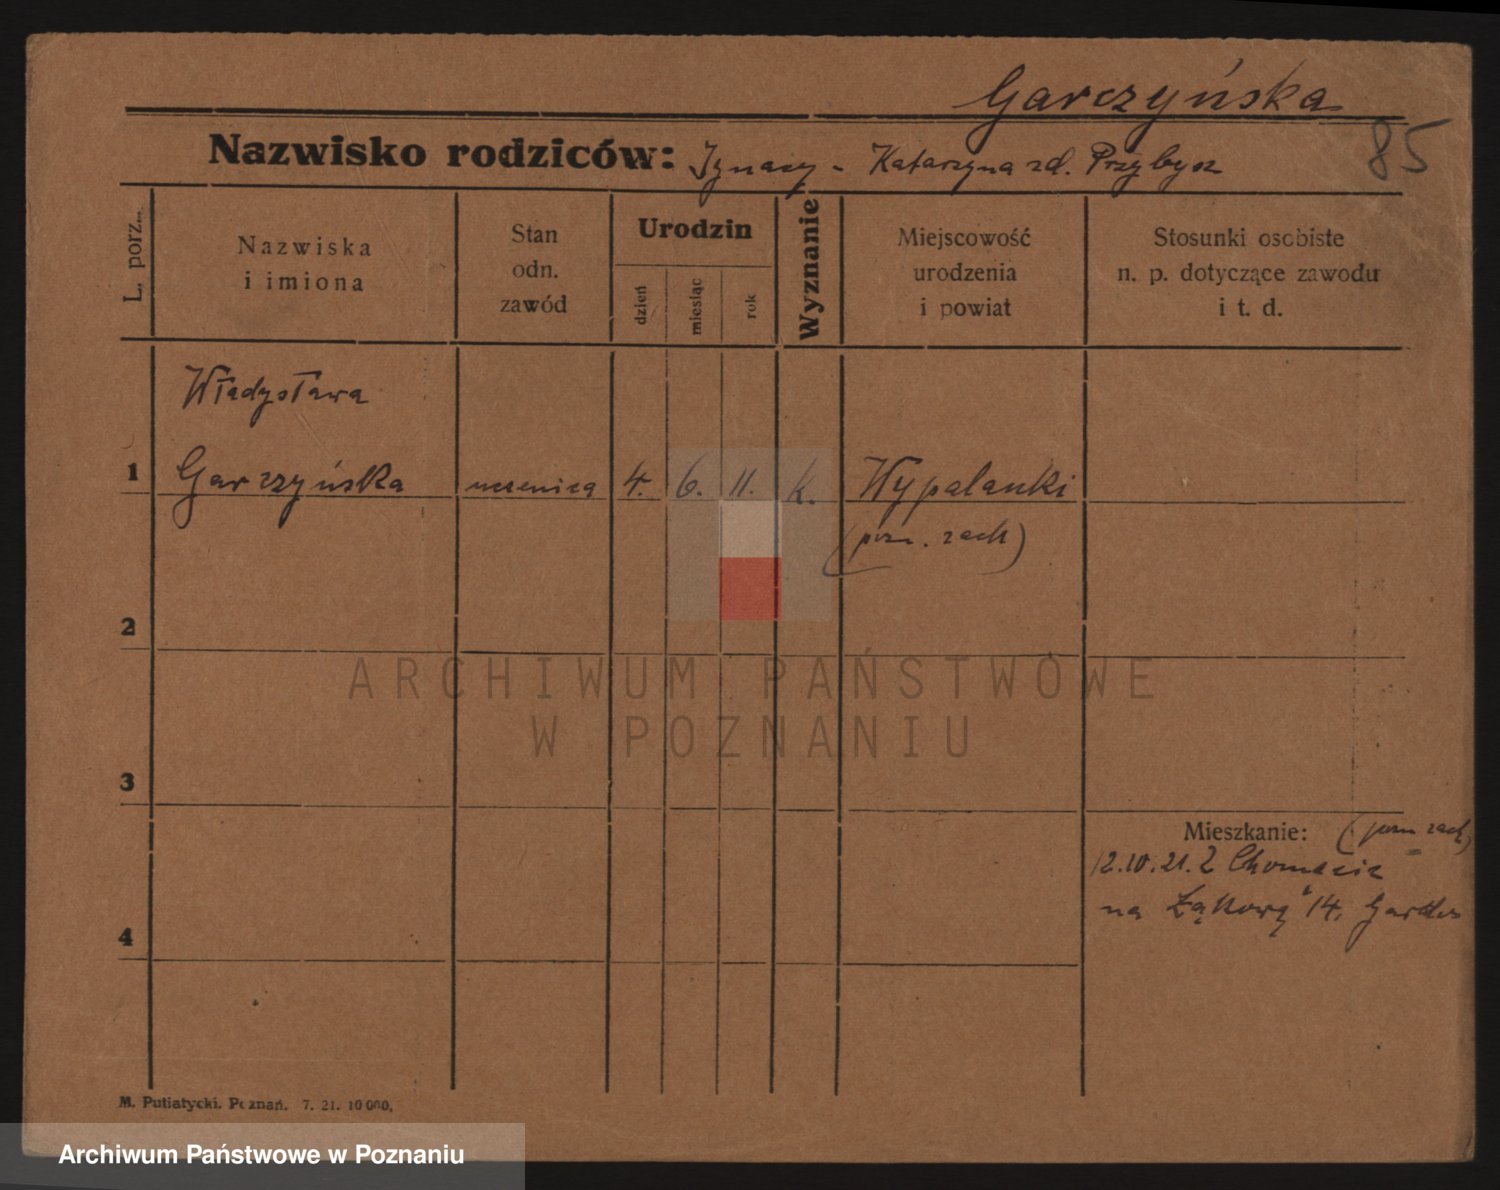 Garczyńska
85
Nazwisko rodziców: Ignacy - Katarzyna zd. Przybysz
L. porz.
Nazwiska
i imiona
Stan
odn.
zawód
Urodzin
dzień
miesiąc
rok
Wyznanie
Miejscowość
urodzenia
i powiat
Stosunki osobiste
n. p. dotyczące zawodu
i t. d.
Władysława
1 Garczyńska uczenica 4. 6. 11. k. Wypalanki
(pozn. zach)
2
3
4
Mieszkanie: (pozn zach)
12.10.21. Z Chomęcic
na Łąkową 14.
M. Putiatycki. Poznań. 7. 21. 10 000.
ARCHIWUM PAŃSTWOWE
W POZNANIU
Archiwum Państwowe w Poznaniu